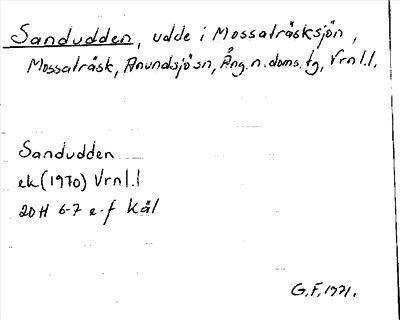 Sandudden, udde i Mossaträsksjön,
Mossaträsk, Anundsjö sn, Ång. n. doms. tg, Vrnl.l.
Sandudden
ek (1970) Vrnl.l
20H 6-7 e-f Kål
G.F. 1971.